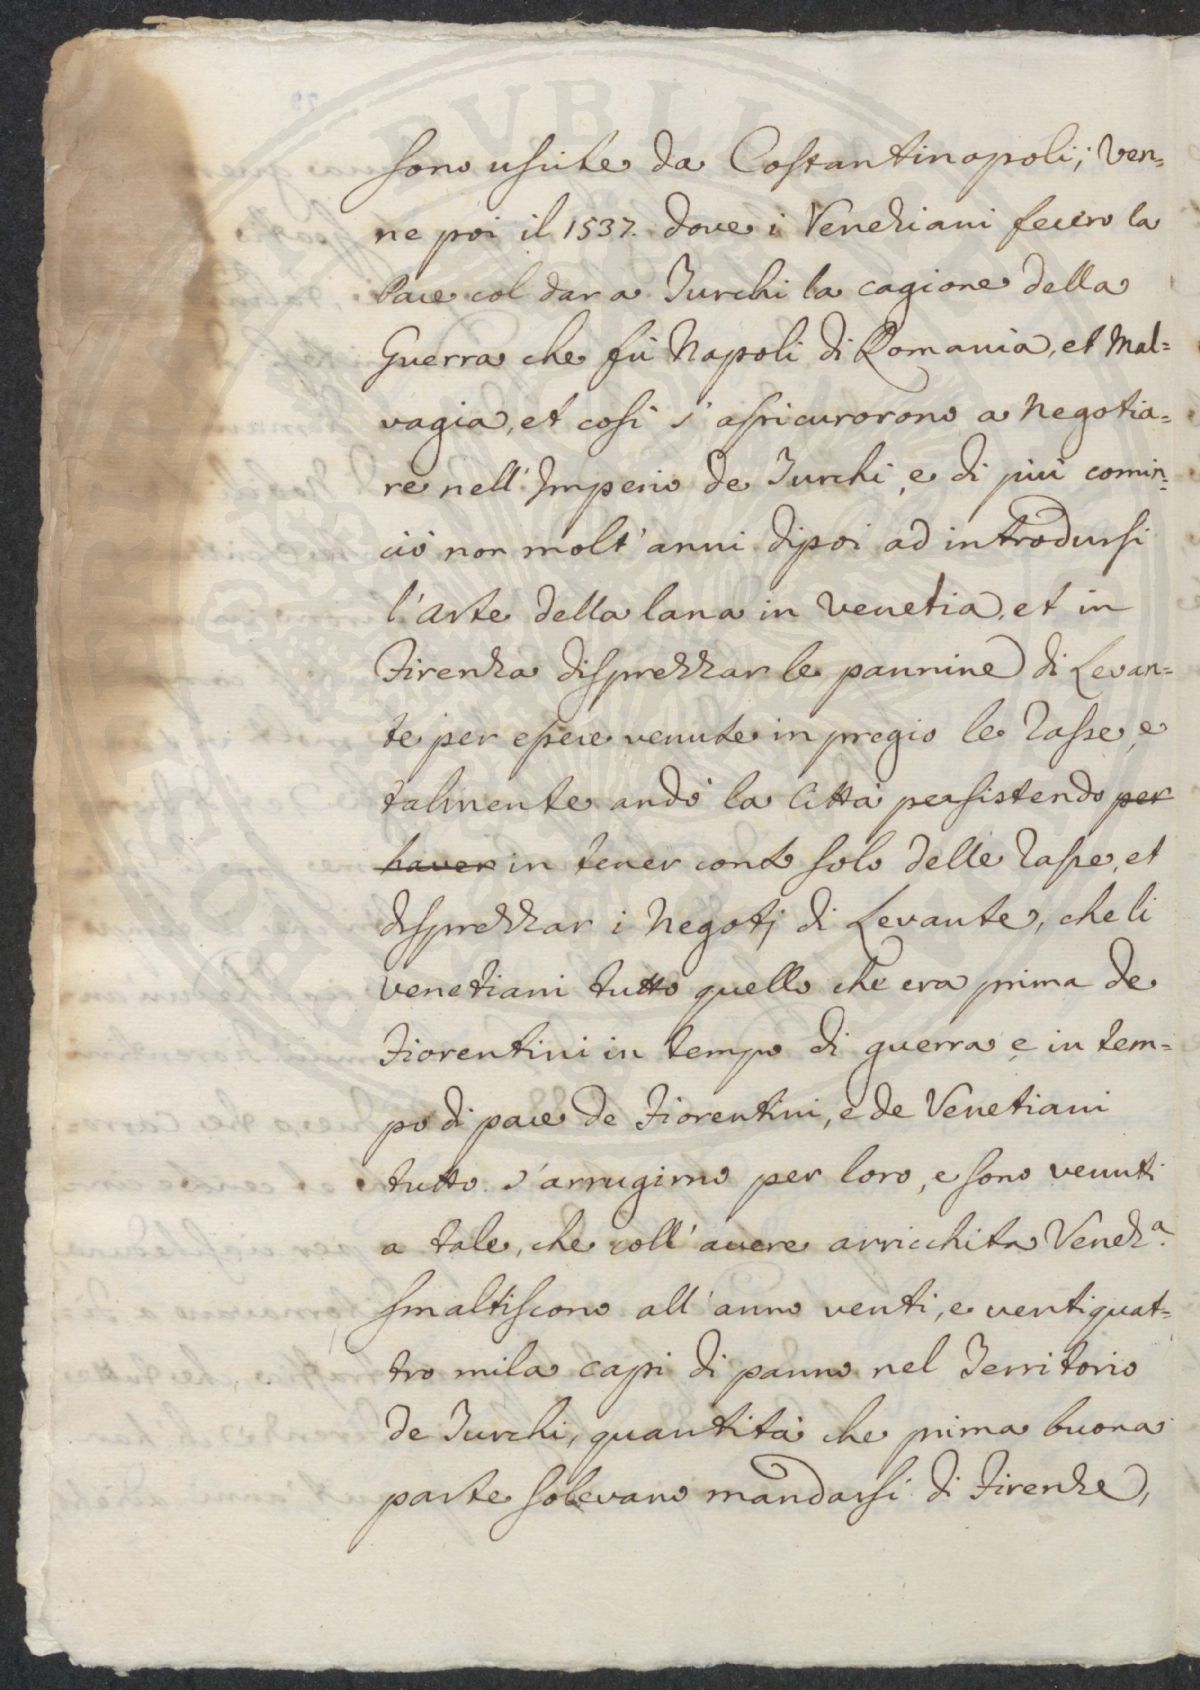 sono uscite da Costantinopoli; Ven=
ne poi il 1537. dove i Veneziani fecero la
Pace col dar a Turchi la cagione della
Guerra che fù Napoli di Romania, et Mal=
vagia, et così s'assicurorono a negotia=
re nell'Imperio de Turchi, e di più comin=
ciò non molt'anni dipoi ad introdursi
l'Arte della lana in Venetia, et in
Firenza disprezzar le pannine di Levan=
te per essere venute in pregio le rasse, e
talmente andò la Città persistendo per
haver in tener conto solo delle rasse, et
disprezzar i Negotj di Levante, che li
Venetiani tutto quello che era prima de
Fiorentini in tempo di guerra e in tem=
po di pace de Fiorentini, e de Venetiani
tutto s'arrugirno per loro, e sono venuti
a tale, che coll'avere arricchita Venez.ª
smaltiscono all'anno venti, e ventiquat=
tro mila capi di panno nel Territorio
de Turchi, quantità che prima buona
parte solevano mandarsi di Firenze,
PVBLI